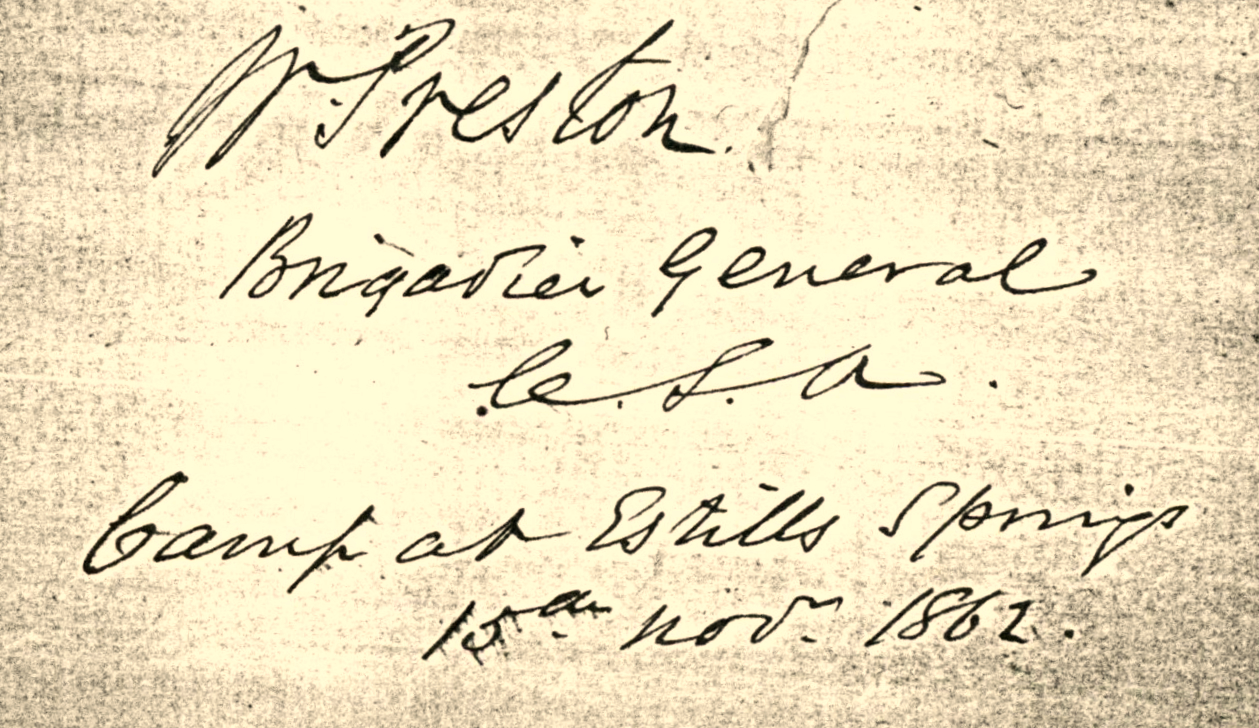 W. Preston.
Brigadier General
C. S. A.
Camp at Estills Springs
15th Novr. 1862.